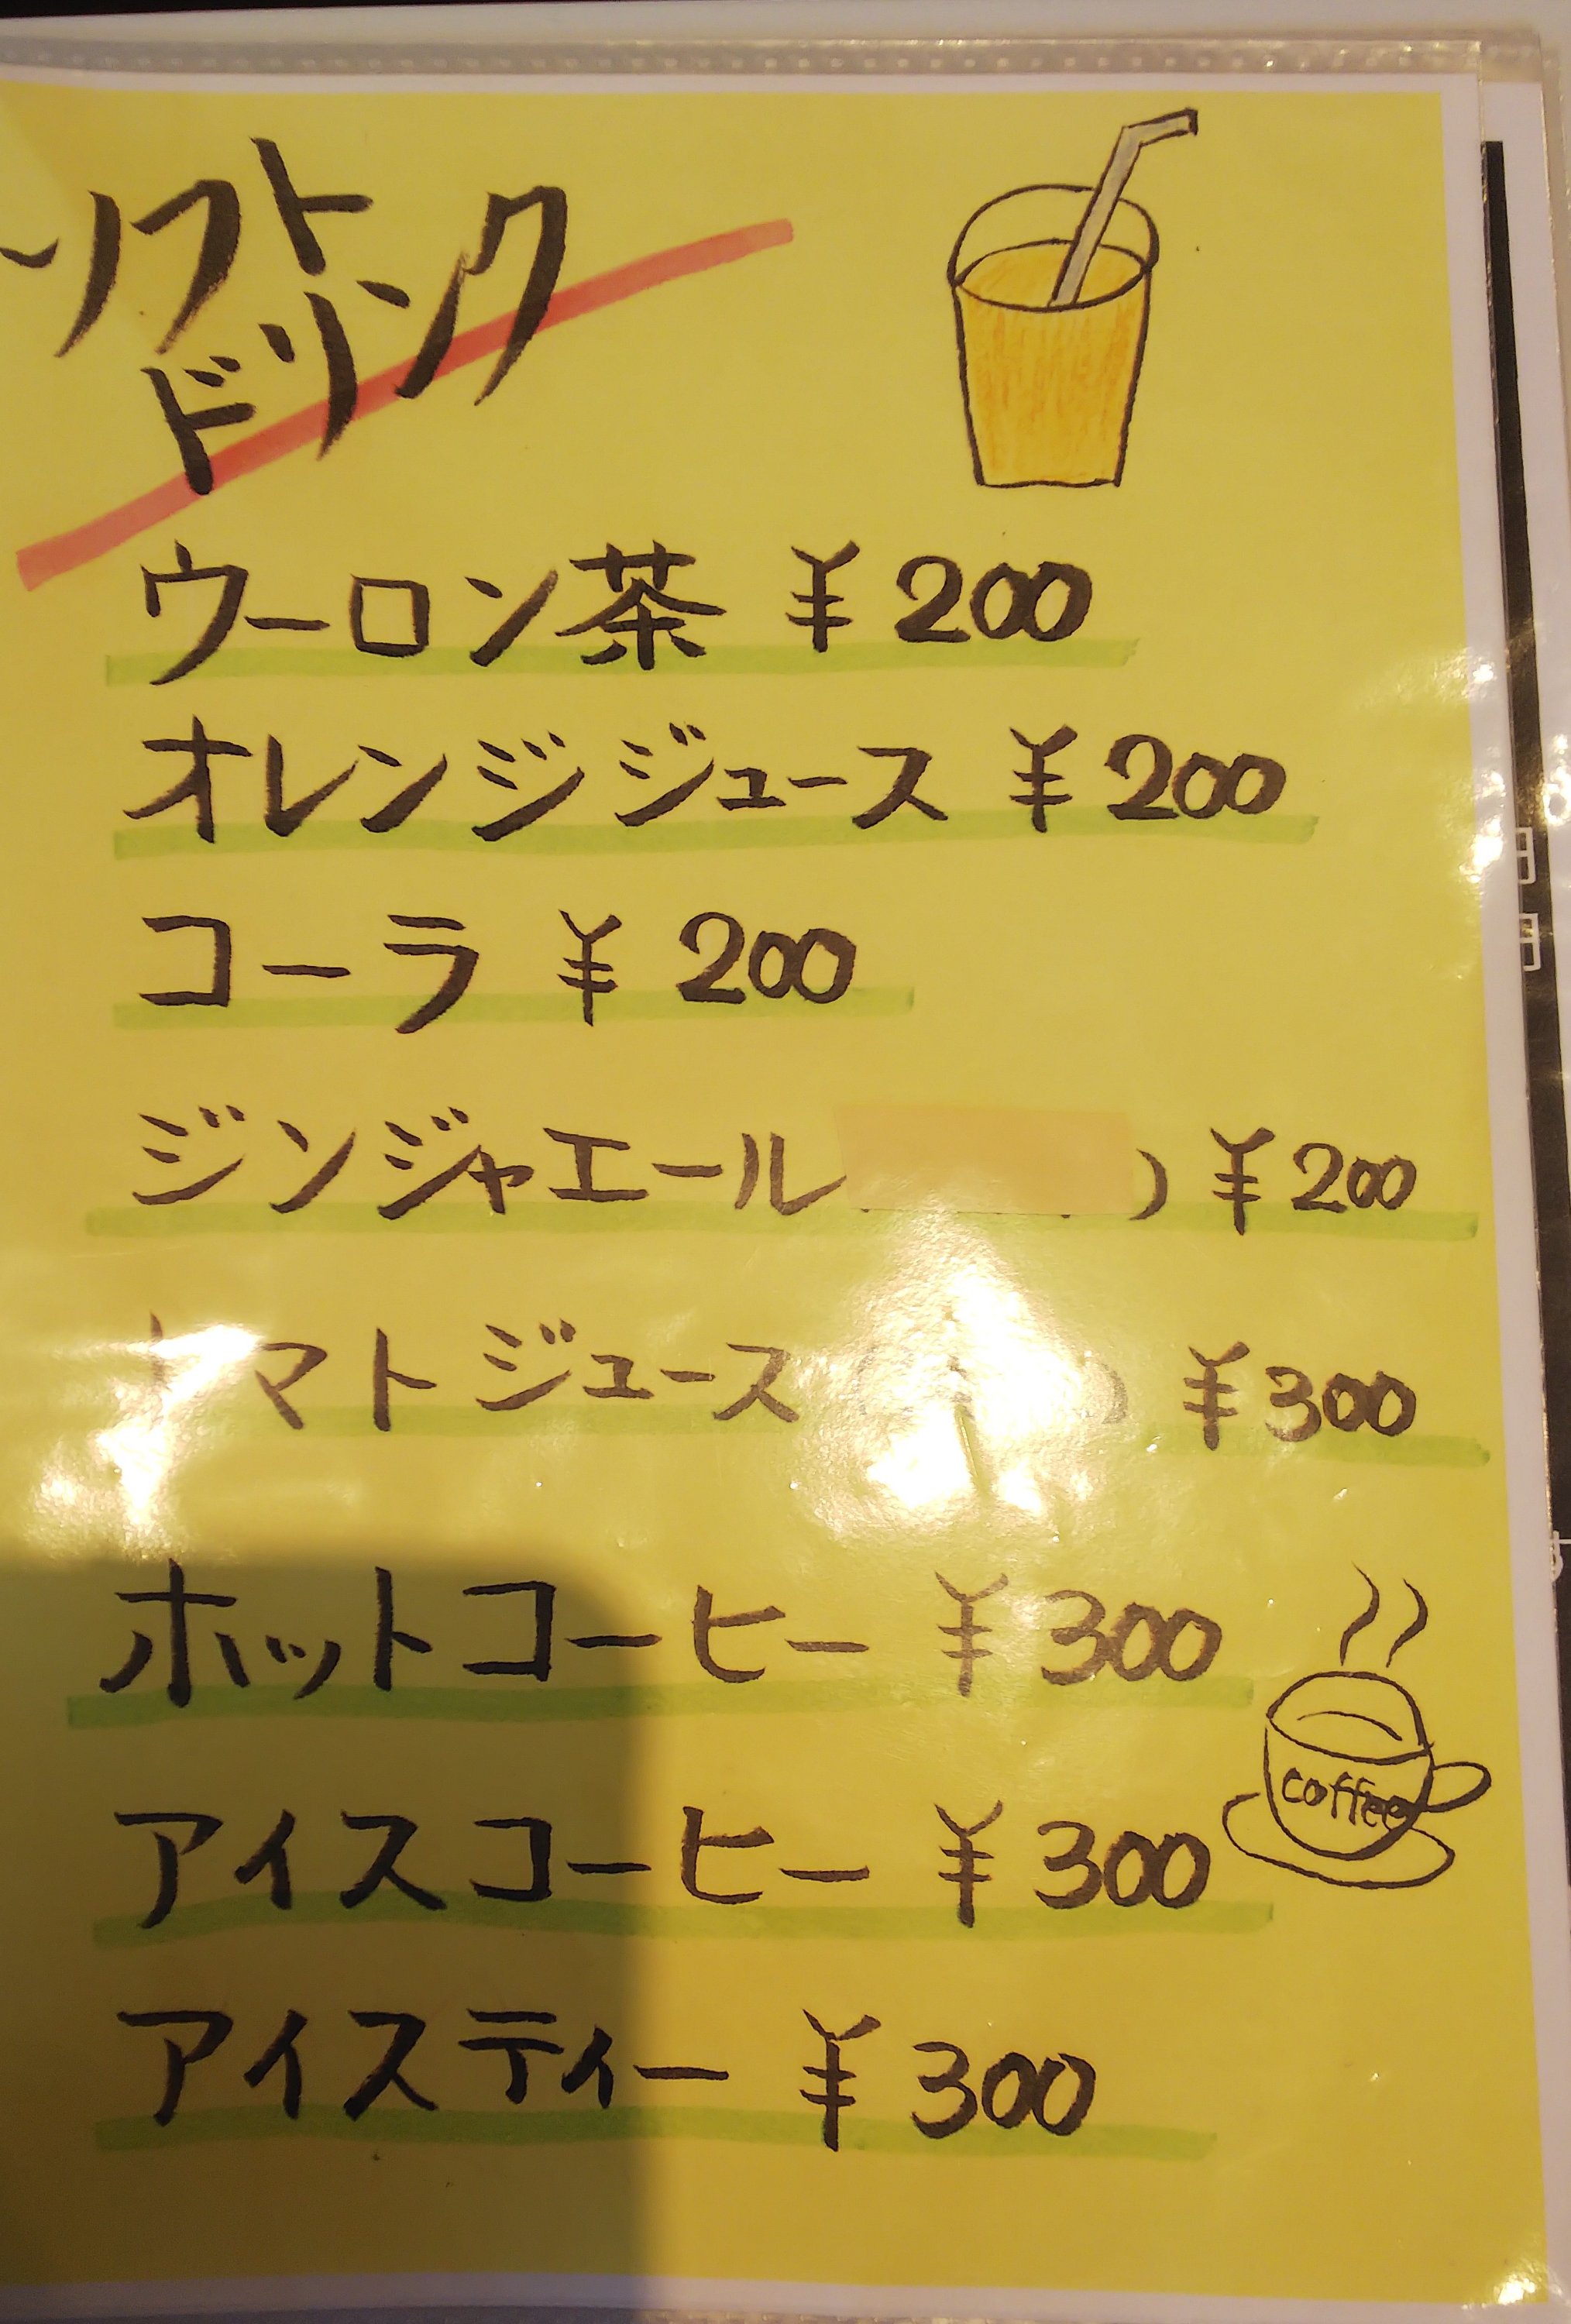 ソフト
ドリンク
ウーロン茶 ¥200
オレンジジュース ¥200
コーラ ¥200
ジンジャエール ) ¥200
トマトジュース ¥300
ホットコーヒー ¥300
coffee
アイスコーヒー ¥300
アイスティー ¥300